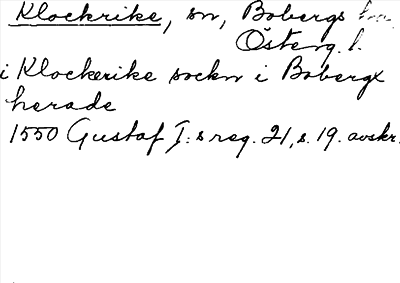 Klockrike, sn, Bobergs hd,
Österg. l.
i Klockerike sockn i Bobergx
herade
1550 Gustaf I:s reg. 21, s. 19. avskr.